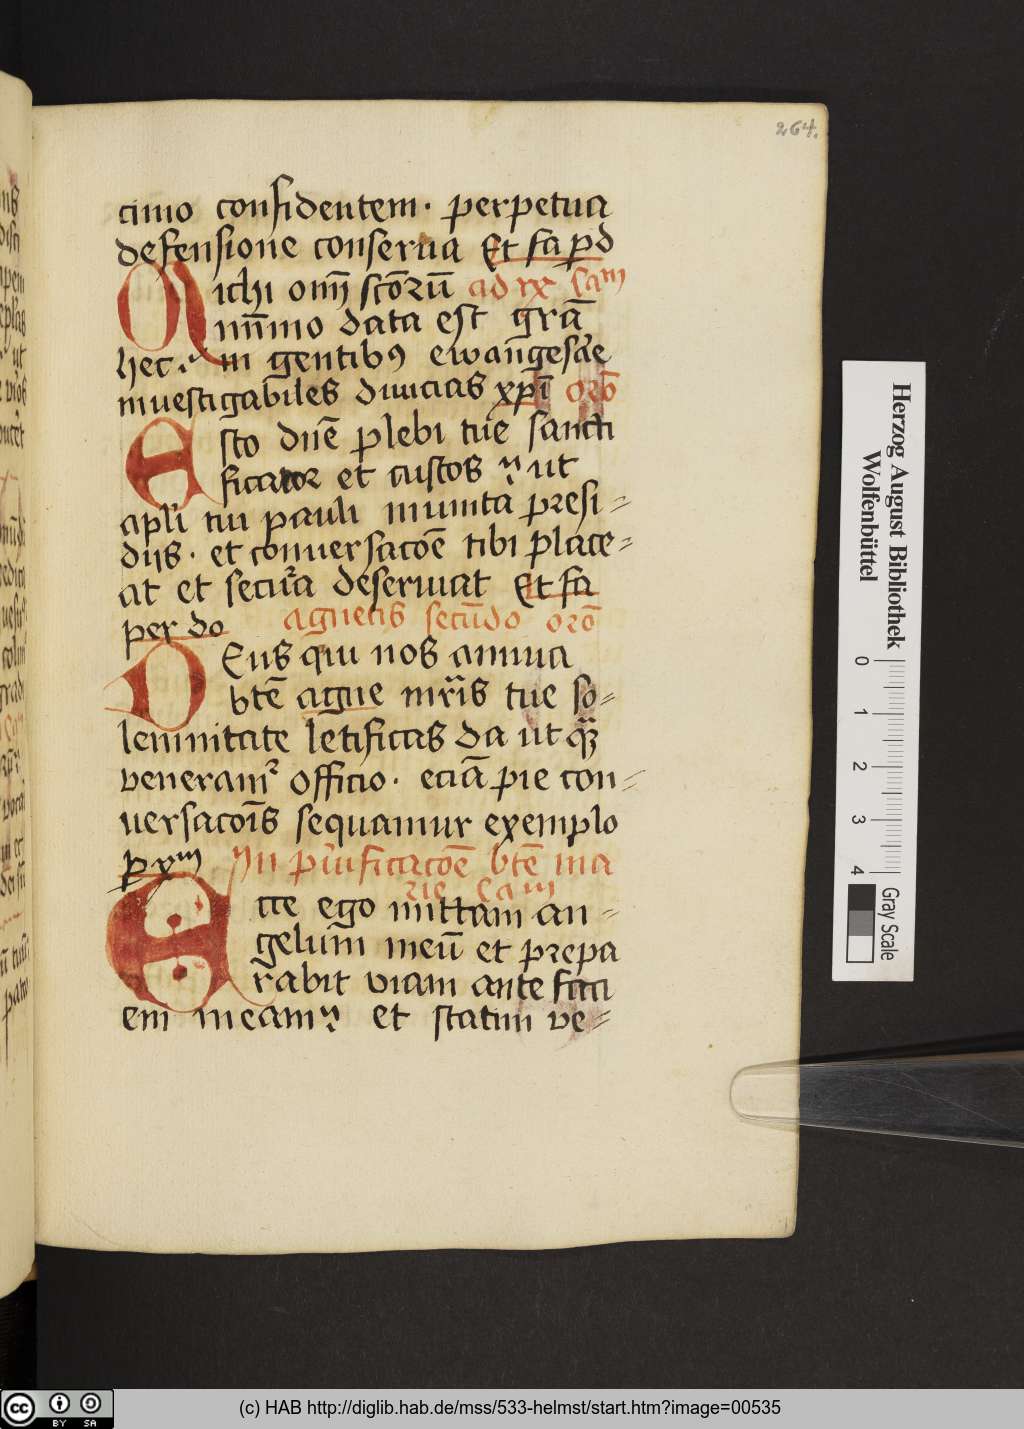 264.
cinio confidentem · perpetua
defensione conserua Et fa p d
Michi om̄ı scōrū ad ıx Cam
mīmo data est grā
hec · in gentibꝰ ewāngesae
inuestigabiles diuicias xp̄ı oro
Esto dn̄e plebi tue sancti
ficator et custos ut
apl̄i tui pauli munita presi =
diis · et conuersacōe tibi place =
at et secura deseruiat Et fa
per do agnetis secūdo orō
Deus qui nos annua
btē agne mr̄is tue so =
lemnitate letificas da ut qᷓ
veneram̄ officio · eciā pie con =
uersacōis sequamur exemplo
p xm In p̄uificacōe btē ma
rie Cam
Ecce ego mittam an =
gelum meū et prepa
rabit viam ante faci
em meam et statim ve =
Herzog August Bibliothek
Wolfenbüttel
0 1 2 3 4
Gray Scale
cc BY SA
(c) HAB http://diglib.hab.de/mss/533-helmst/start.htm?image=00535